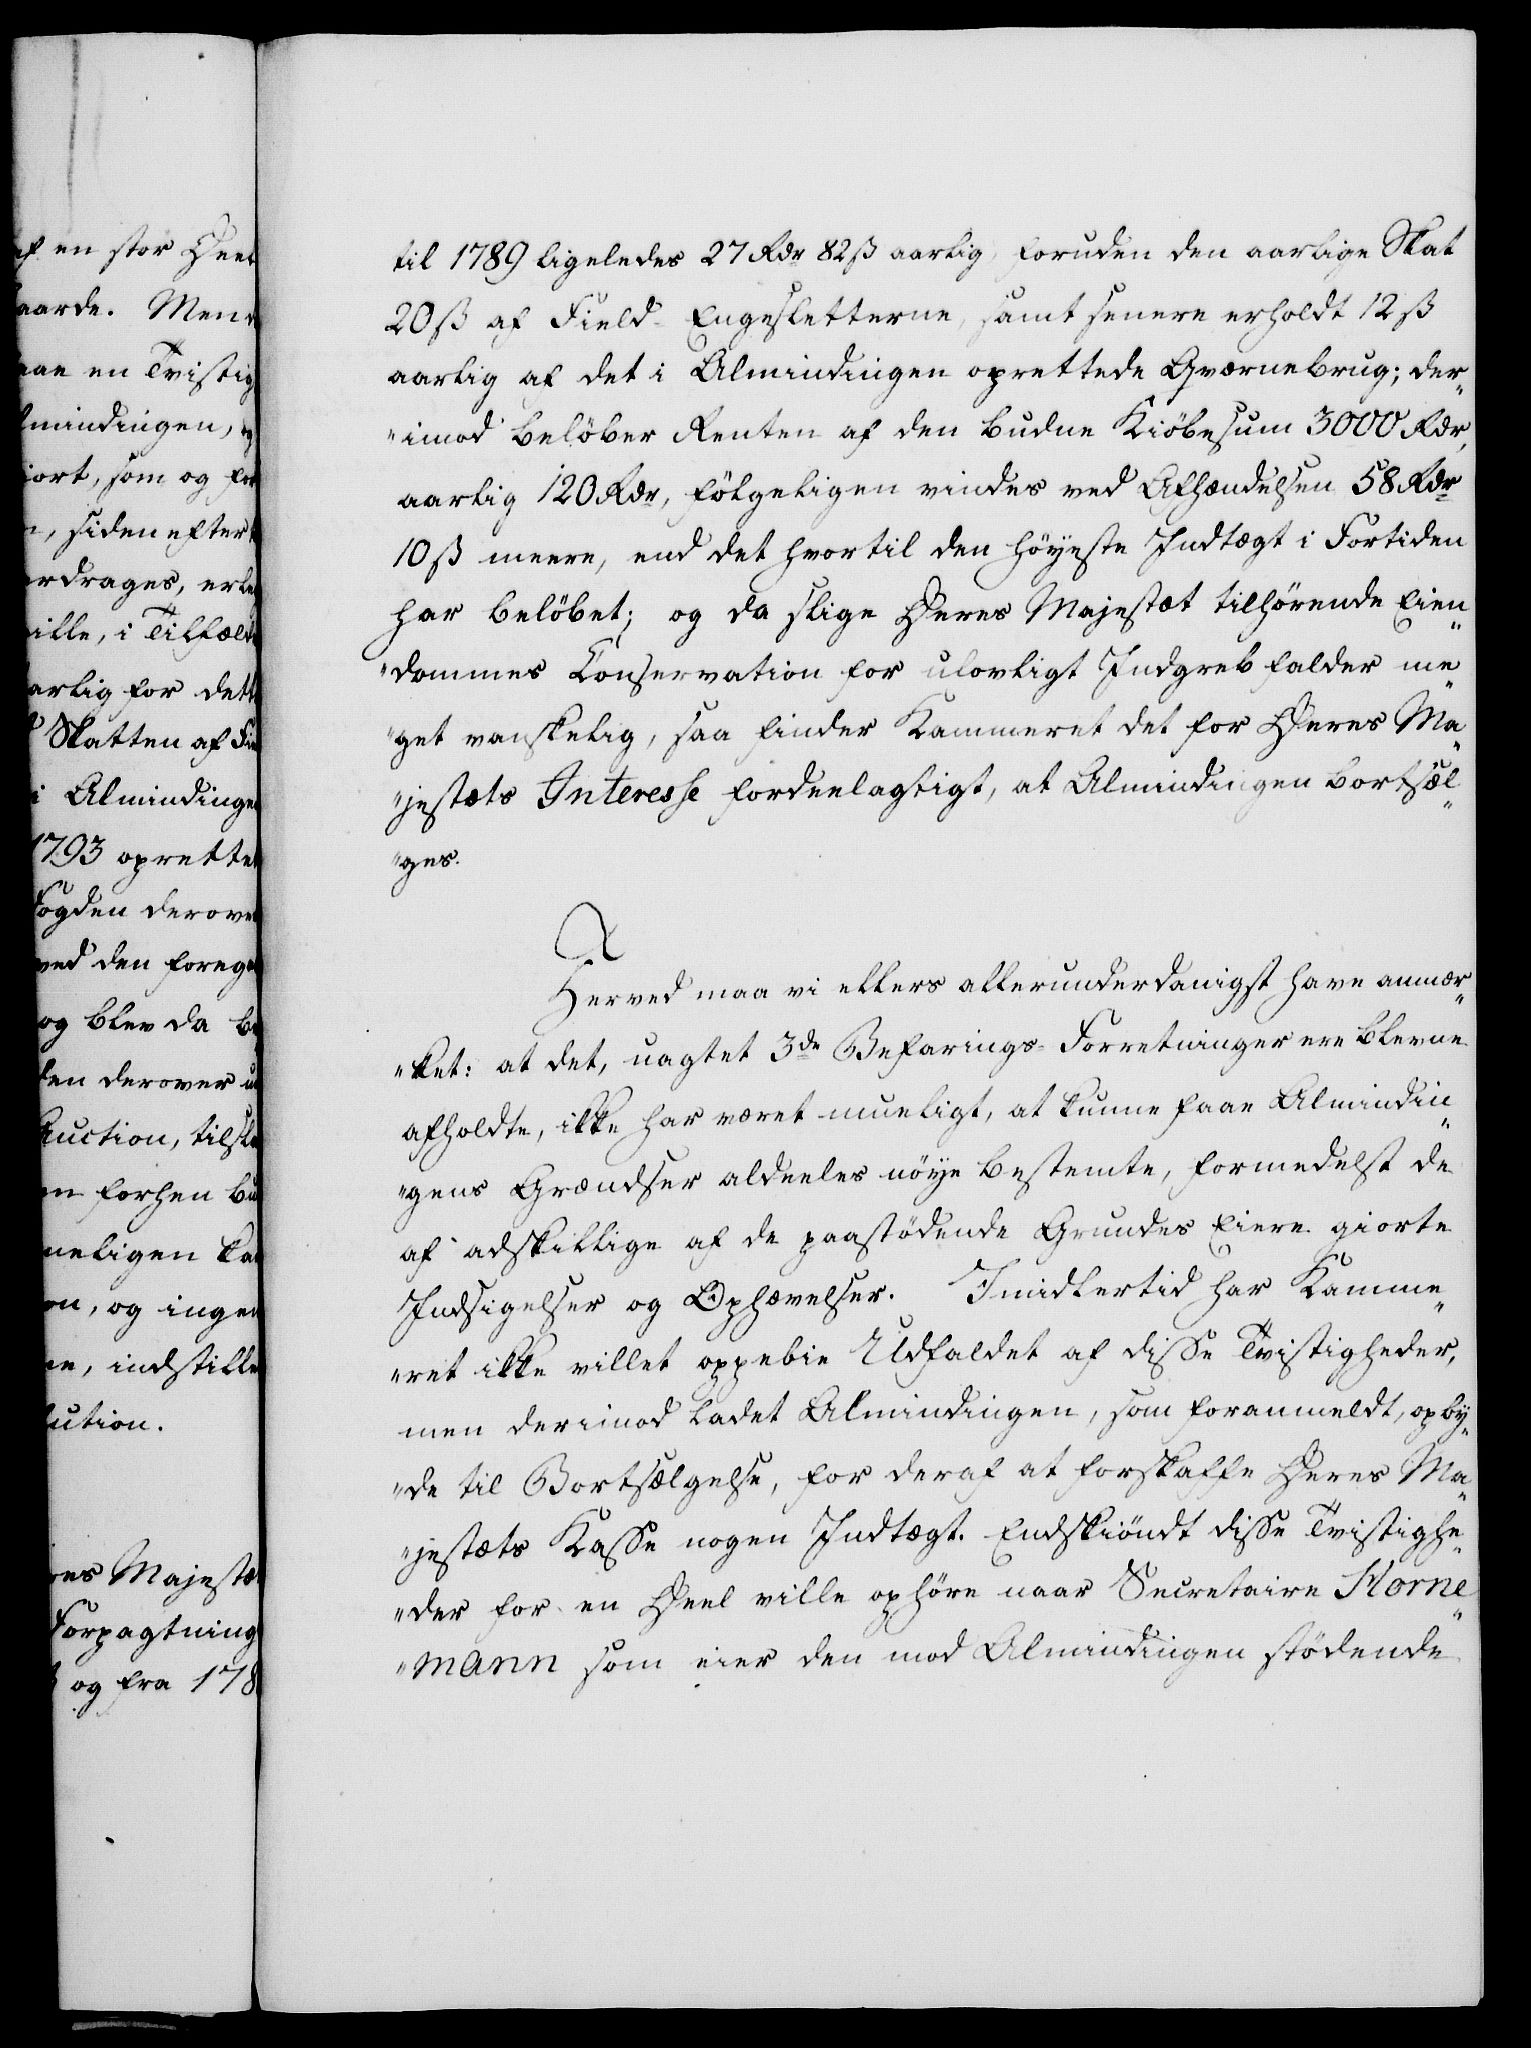 af en stor Deel
aarde. Men
aae en Tvistig
lmindingen, og
iort, som og for
, siden efter
erdrages, erle
ille, i Tilfælde
arlig for dett
Skatten af Fie
i Almindinge
1793 oprettet
Fogden derove
ved den forega
og blev da be
den derover u
Auction, tilsla
en forhen bu
meligen kan
en, og ingen
ne, indstille
lution.
res Majestæ
Forpagtning
og fra 178
til 1789 ligeledes 27 Rdr 82 ß aarlig, foruden den aarlige Skat
20 ß af Field-Engesletterne, samt senere erholdt 12 ß
aarlig af det i Almindingen oprettede Qværnebrug; der„
„imod beløber Renten af den budne Kiöbesum 3000 Rdr,
aarlig 120 Rdr, fölgeligen vindes ved Afhændelsen 58 Rdr
10 ß meere, end det hvortil den höyeste Indtægt i Fortiden
har belöbet; og da slige Deres Majestæt tilhörende Eien„
„dommes Conservation for ulovligt Indgreb falder me„
„get vanskelig, saa finder Kammeret det for Deres Ma„
„jestæts Interesse fordeelagtigt, at Almindingen bortsæl„
„ges.
Herved maa vi ellers allerunderdanigst have anmær„
„ket: at det, uagtet 3de Befarings-Forretninger ere blevne
afholdte, ikke har været mueligt, at kunne faae Almindin„
„gens Grændser aldeeles nöye bestemte, formedelst de
af adskillige af de paastödende Grundes Eiere giorte
Indsigelser og Ophævelser. Imidlertid har Kamme„
„ret ikke villet oppebie Udfaldet af disse Tvistigheder,
men derimod ladet Almindingen, som foranmeldt, opby„
„de til Bortsælgelse, for deraf at forskaffe Deres Ma„
„jestæts Kasse nogen Indtægt. Endskiöndt disse Tvistighe„
„der for en Deel ville ophöre naar Secretaire Horne„
„mann som eier den mod Almindingen stödende